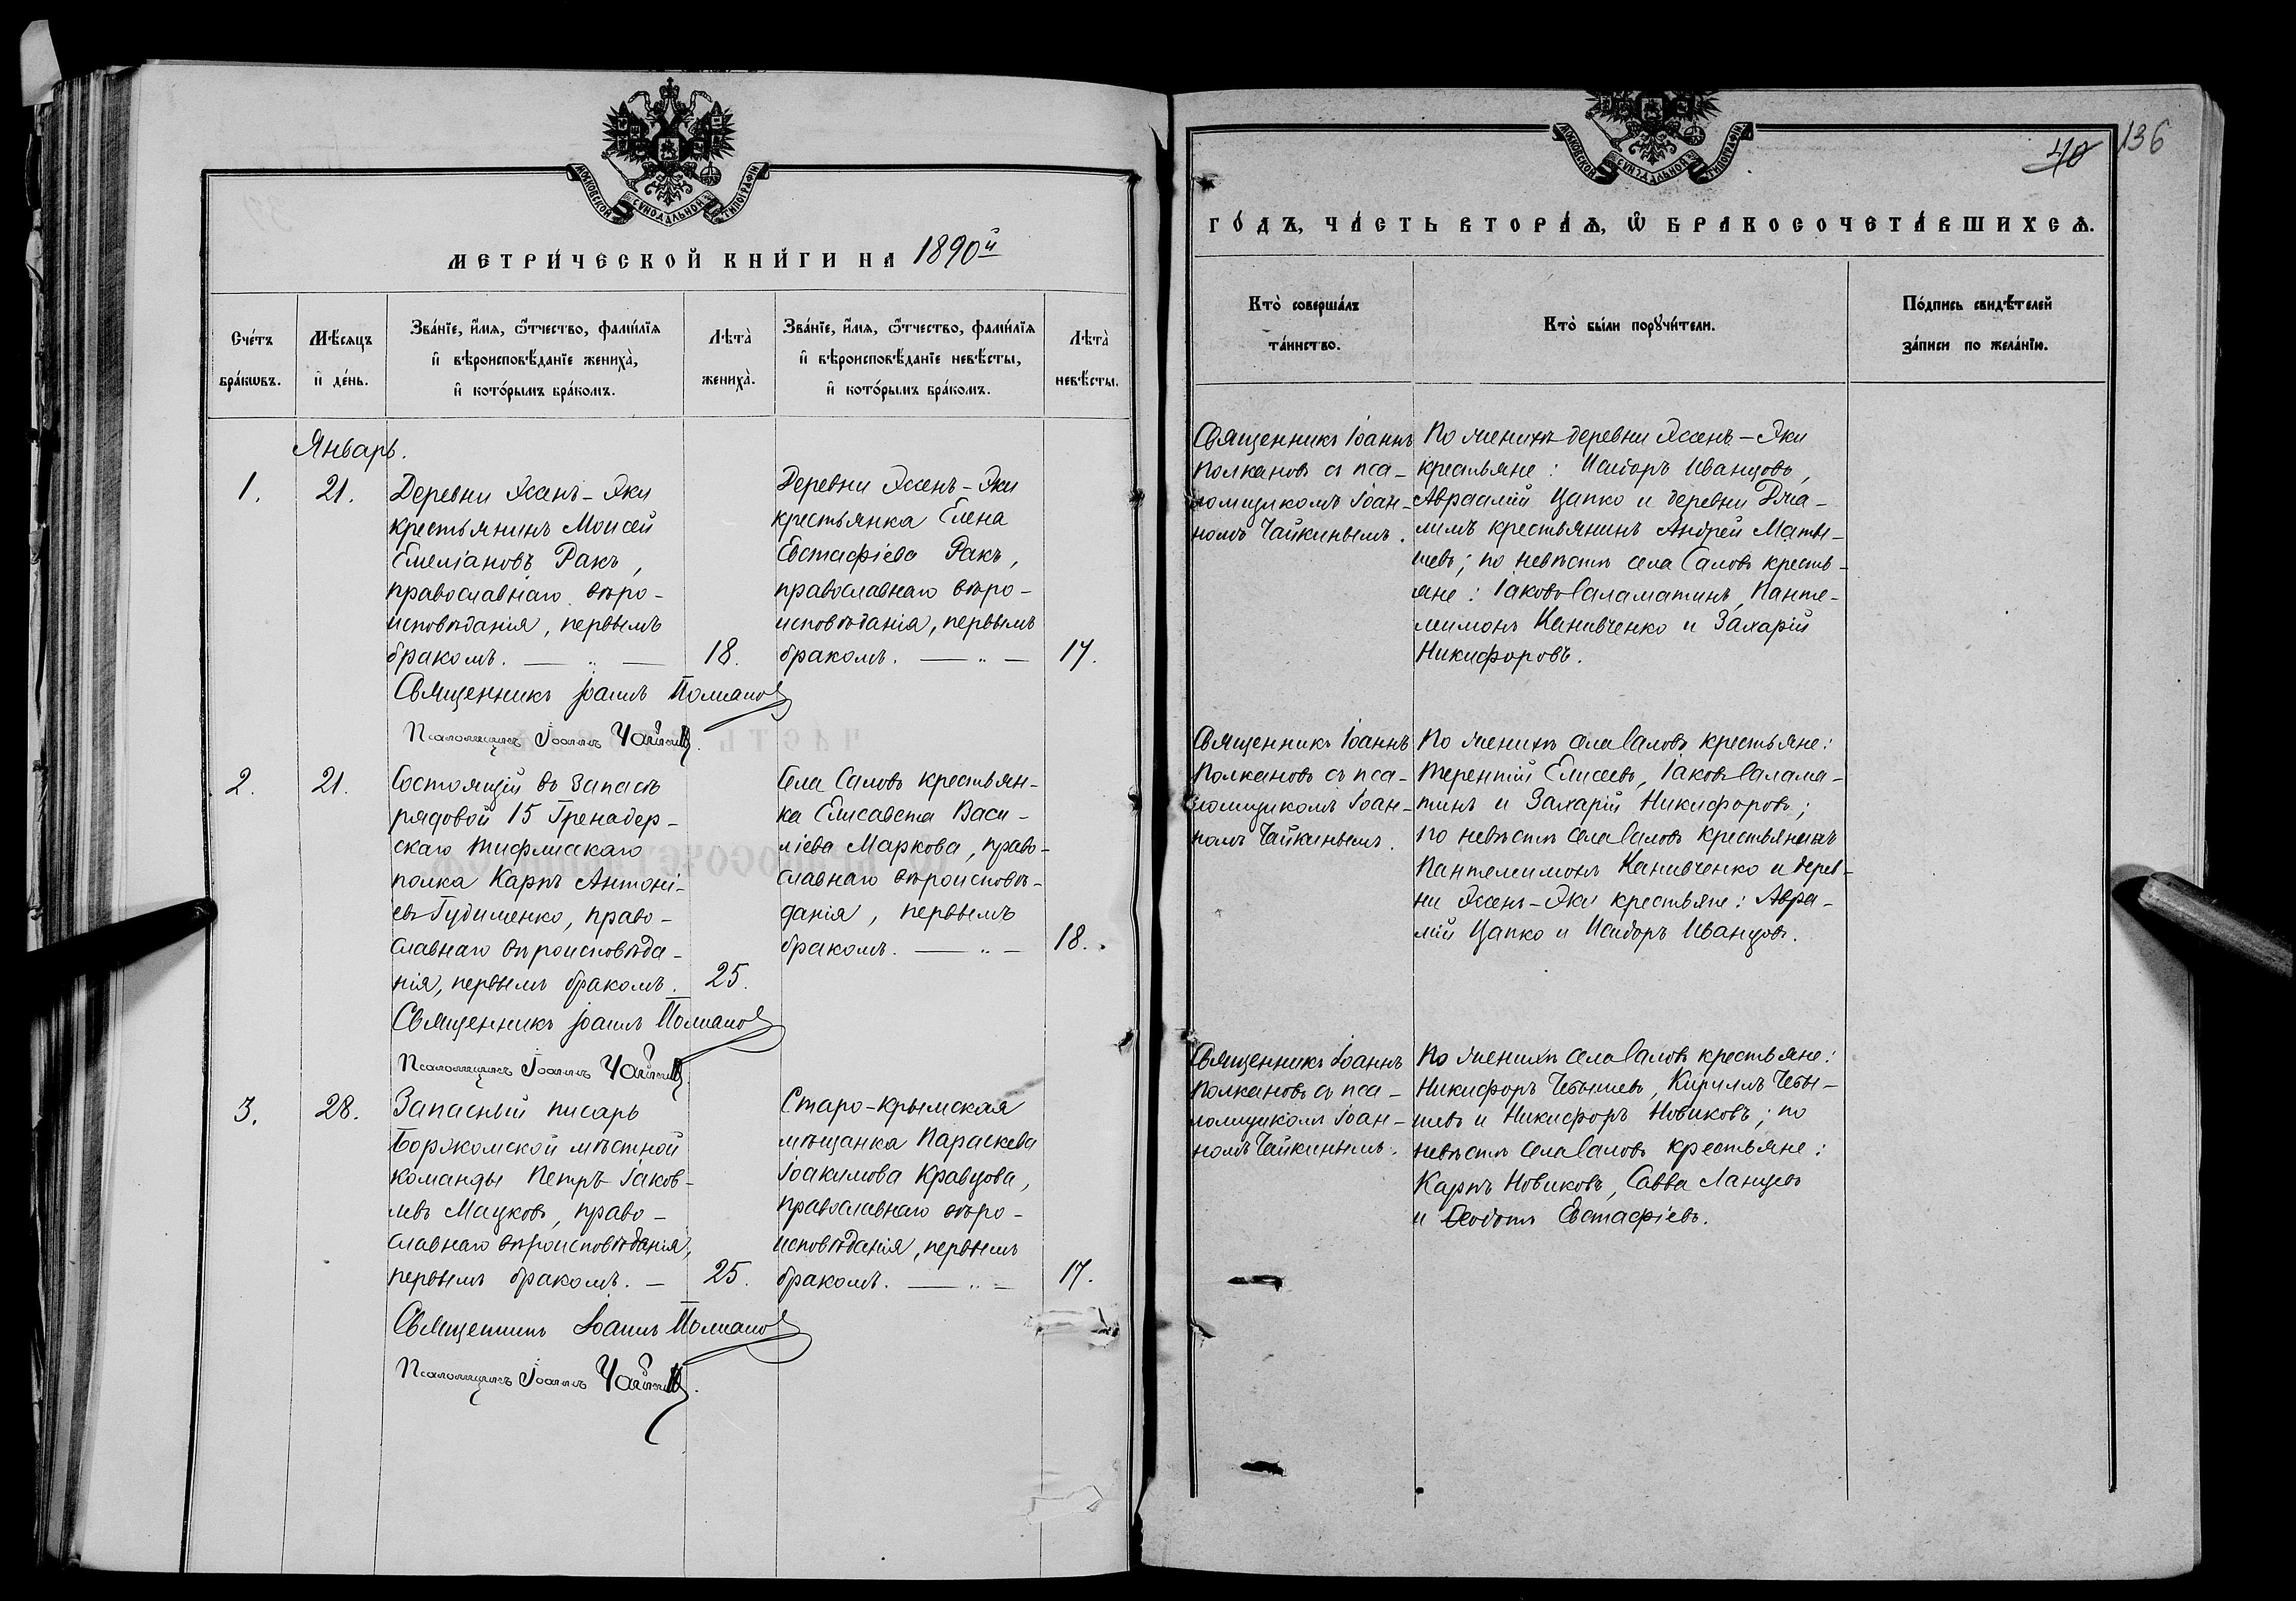 МОСКОВСКОЙ СѴНОДАЛЬНОЙ ТИПОГРАФІИ
МЕТРИ́ЧЕСКОЙ КНИ́ГИ НА 1890й
Сче́тъ бра́кѡвъ.
Мѣ́сяцъ и҆ де́нь.
Зва́нїе, и҆́мя, ѻ҆́тчество, фами́лїя
и҆ вѣроисповѣ́данїе жениха̀,
и҆ кото́рымъ бра́комъ.
Лѣта̀ жениха̀.
Зва́нїе, и҆́мя, ѻ҆́тчество, фами́лїя
и҆ вѣроисповѣ́данїе невѣ́сты,
и҆ кото́рымъ бра́комъ.
Лѣта̀ невѣ́сты.
Январь.
1.
21.
Деревни Эсенъ-Эки
крестьянинъ Моисей
Емеліановъ Ракъ,
православнаго вѣро-
исповѣданія, первымъ
бракомъ. — „ —
18.
Деревни Эсенъ-Эки
крестьянка Елена
Евстафіева Ракъ,
православнаго вѣро-
исповѣданія, первымъ
бракомъ. — „ —
17.
Священникъ Іоаннъ Полкановъ
Псаломщикъ Іоаннъ Чайкинъ.
2.
21.
Состоящій въ запасѣ
рядовой 15 Гренадер-
скаго Тифлисскаго
полка Карпъ Антоні-
евъ Гудименко, право-
славнаго вѣроисповѣда-
нія, первымъ бракомъ.
25.
Села Саловъ крестьян-
ка Елисавета Васи-
ліева Маркова, право-
славнаго вѣроисповѣ-
данія, первымъ
бракомъ. — „ —
18.
Священникъ Іоаннъ Полкановъ
Псаломщикъ Іоаннъ Чайкинъ.
3.
28.
Запасный писарь
Боржомской мѣстной
команды Петръ Іаков-
левъ Мацковъ, право-
славнаго вѣроисповѣданія,
первымъ бракомъ. —
25.
Старо-крымская
мѣщанка Параскева
Іоакимова Кравцова,
православнаго вѣро-
исповѣданія, первымъ
бракомъ. — „ —
17.
Священникъ Іоаннъ Полкановъ
Псаломщикъ Іоаннъ Чайкинъ.
МОСКОВСКОЙ СѴНОДАЛЬНОЙ ТИПОГРАФІИ
40
136
ГО́ДЪ, ЧА́СТЬ ВТОРА́Ѧ, Ѡ҆ БРАКОСОЧЕТА́ВШИХСѦ.
Кто̀ соверша́лъ
та́инство.
Кто̀ бы́ли порꙋчи́тели.
По́дпись свидѣ́телей
за́писи по жела́нїю.
Священникъ Іоаннъ
Полкановъ съ пса-
ломщикомъ Іоан-
номъ Чайкинымъ.
По женихѣ деревни Эсенъ-Эки
крестьяне: Исидоръ Иванцовъ,
Авраамій Цапко и деревни Джа-
лимъ крестьянинъ Андрей Маты-
шевъ; по невѣстѣ села Саловъ кресть-
яне: Іаковъ Саламатинъ, Панте-
леимонъ Канивченко и Захарій
Никифоровъ.
Священникъ Іоаннъ
Полкановъ съ пса-
ломщикомъ Іоан-
номъ Чайкинымъ.
По женихѣ села Саловъ крестьяне:
Терентій Елисеевъ, Іаковъ Салама-
тинъ и Захарій Никифоровъ;
по невѣстѣ села Саловъ крестьянинъ
Пантелеимонъ Канивченко и дерев-
ни Эсенъ-Эки крестьяне: Авра-
мій Цапко и Исидоръ Иванцовъ.
Священникъ Іоаннъ
Полкановъ съ пса-
ломщикомъ Іоан-
номъ Чайкинымъ.
По женихѣ села Саловъ крестьяне:
Никифоръ Чебышевъ, Кириллъ Чебы-
шевъ и Никифоръ Новиковъ; по
невѣстѣ села Саловъ крестьяне:
Карпъ Новиковъ, Савва Ланцевъ
и Ѳеодотъ Евстафіевъ.